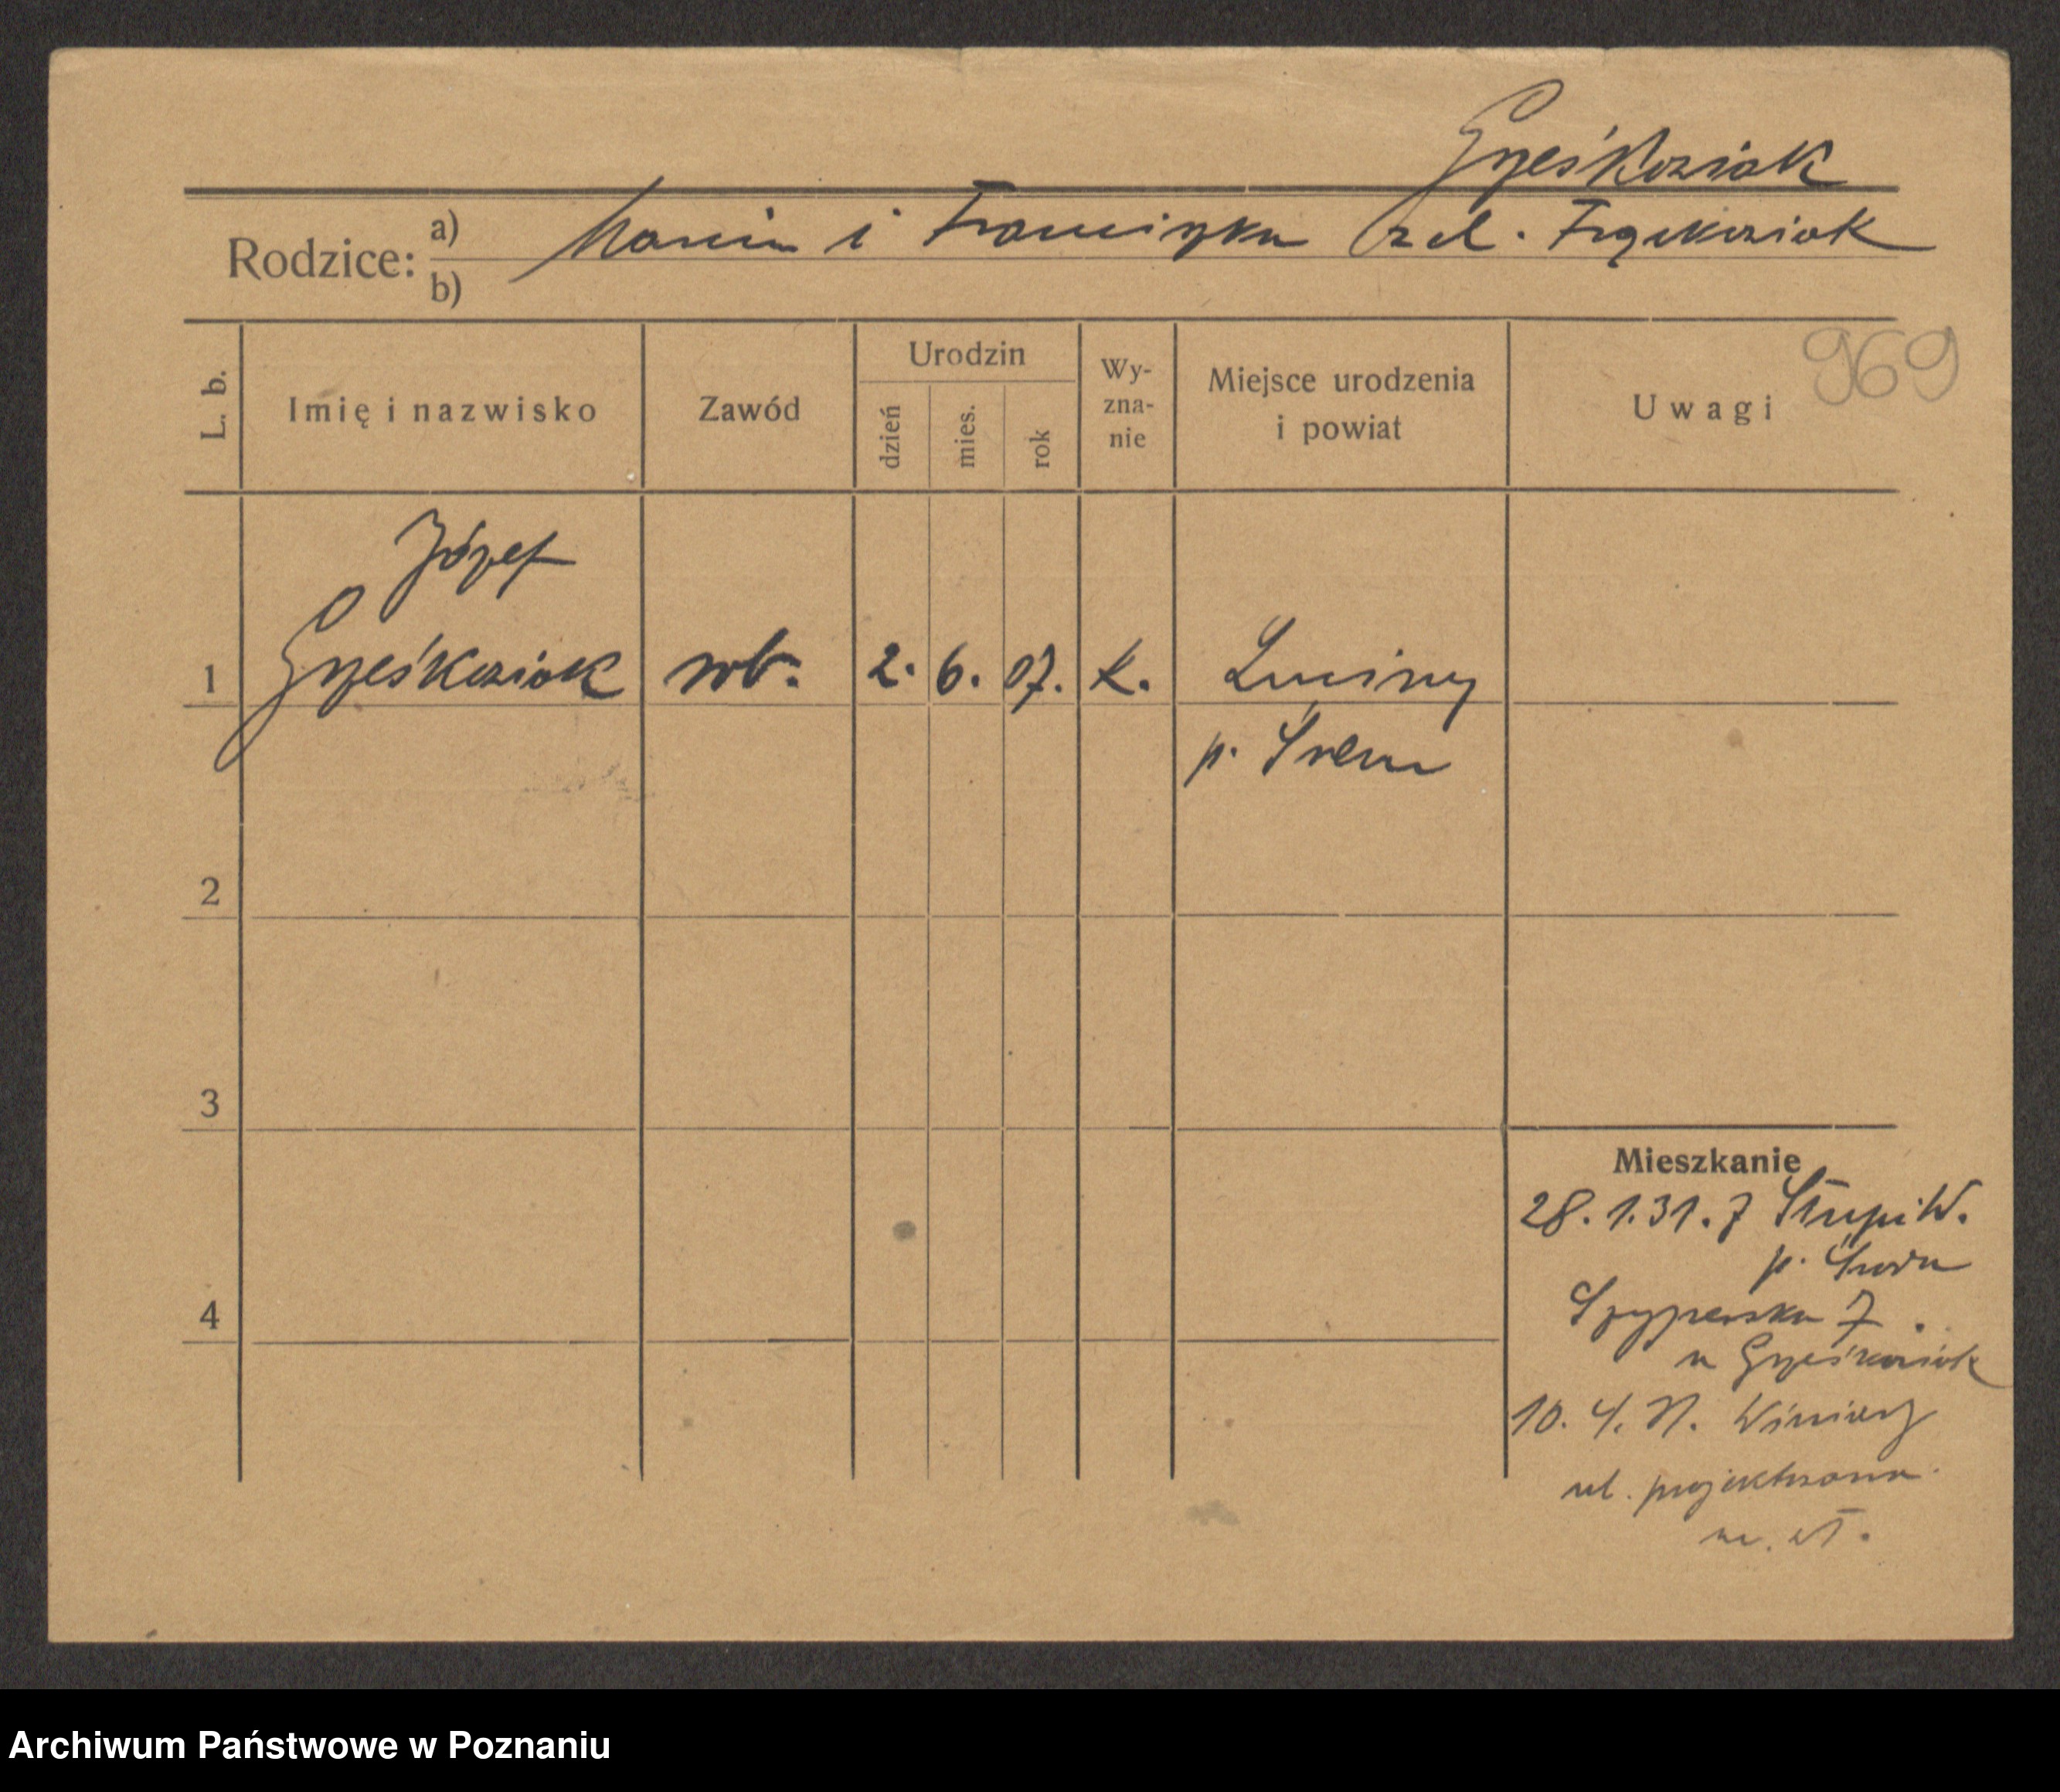 Grześkowiak
Rodzice: a) Marcin i Franciszka zd. Frąckowiak
b)
L. b. Imię i nazwisko Zawód Urodzin dzień mies. rok Wy-zna-nie Miejsce urodzenia i powiat Uwagi 969
Józef
1 Grześkowiak rob. 2. 6. 07. k. Luciny
p. Śrem
2
3
Mieszkanie
28.1.31. z
p. Środa
4
Szyperska 7.
u Grześkowiak
10. 4. 31. Winiary
ul. projektowana
Archiwum Państwowe w Poznaniu